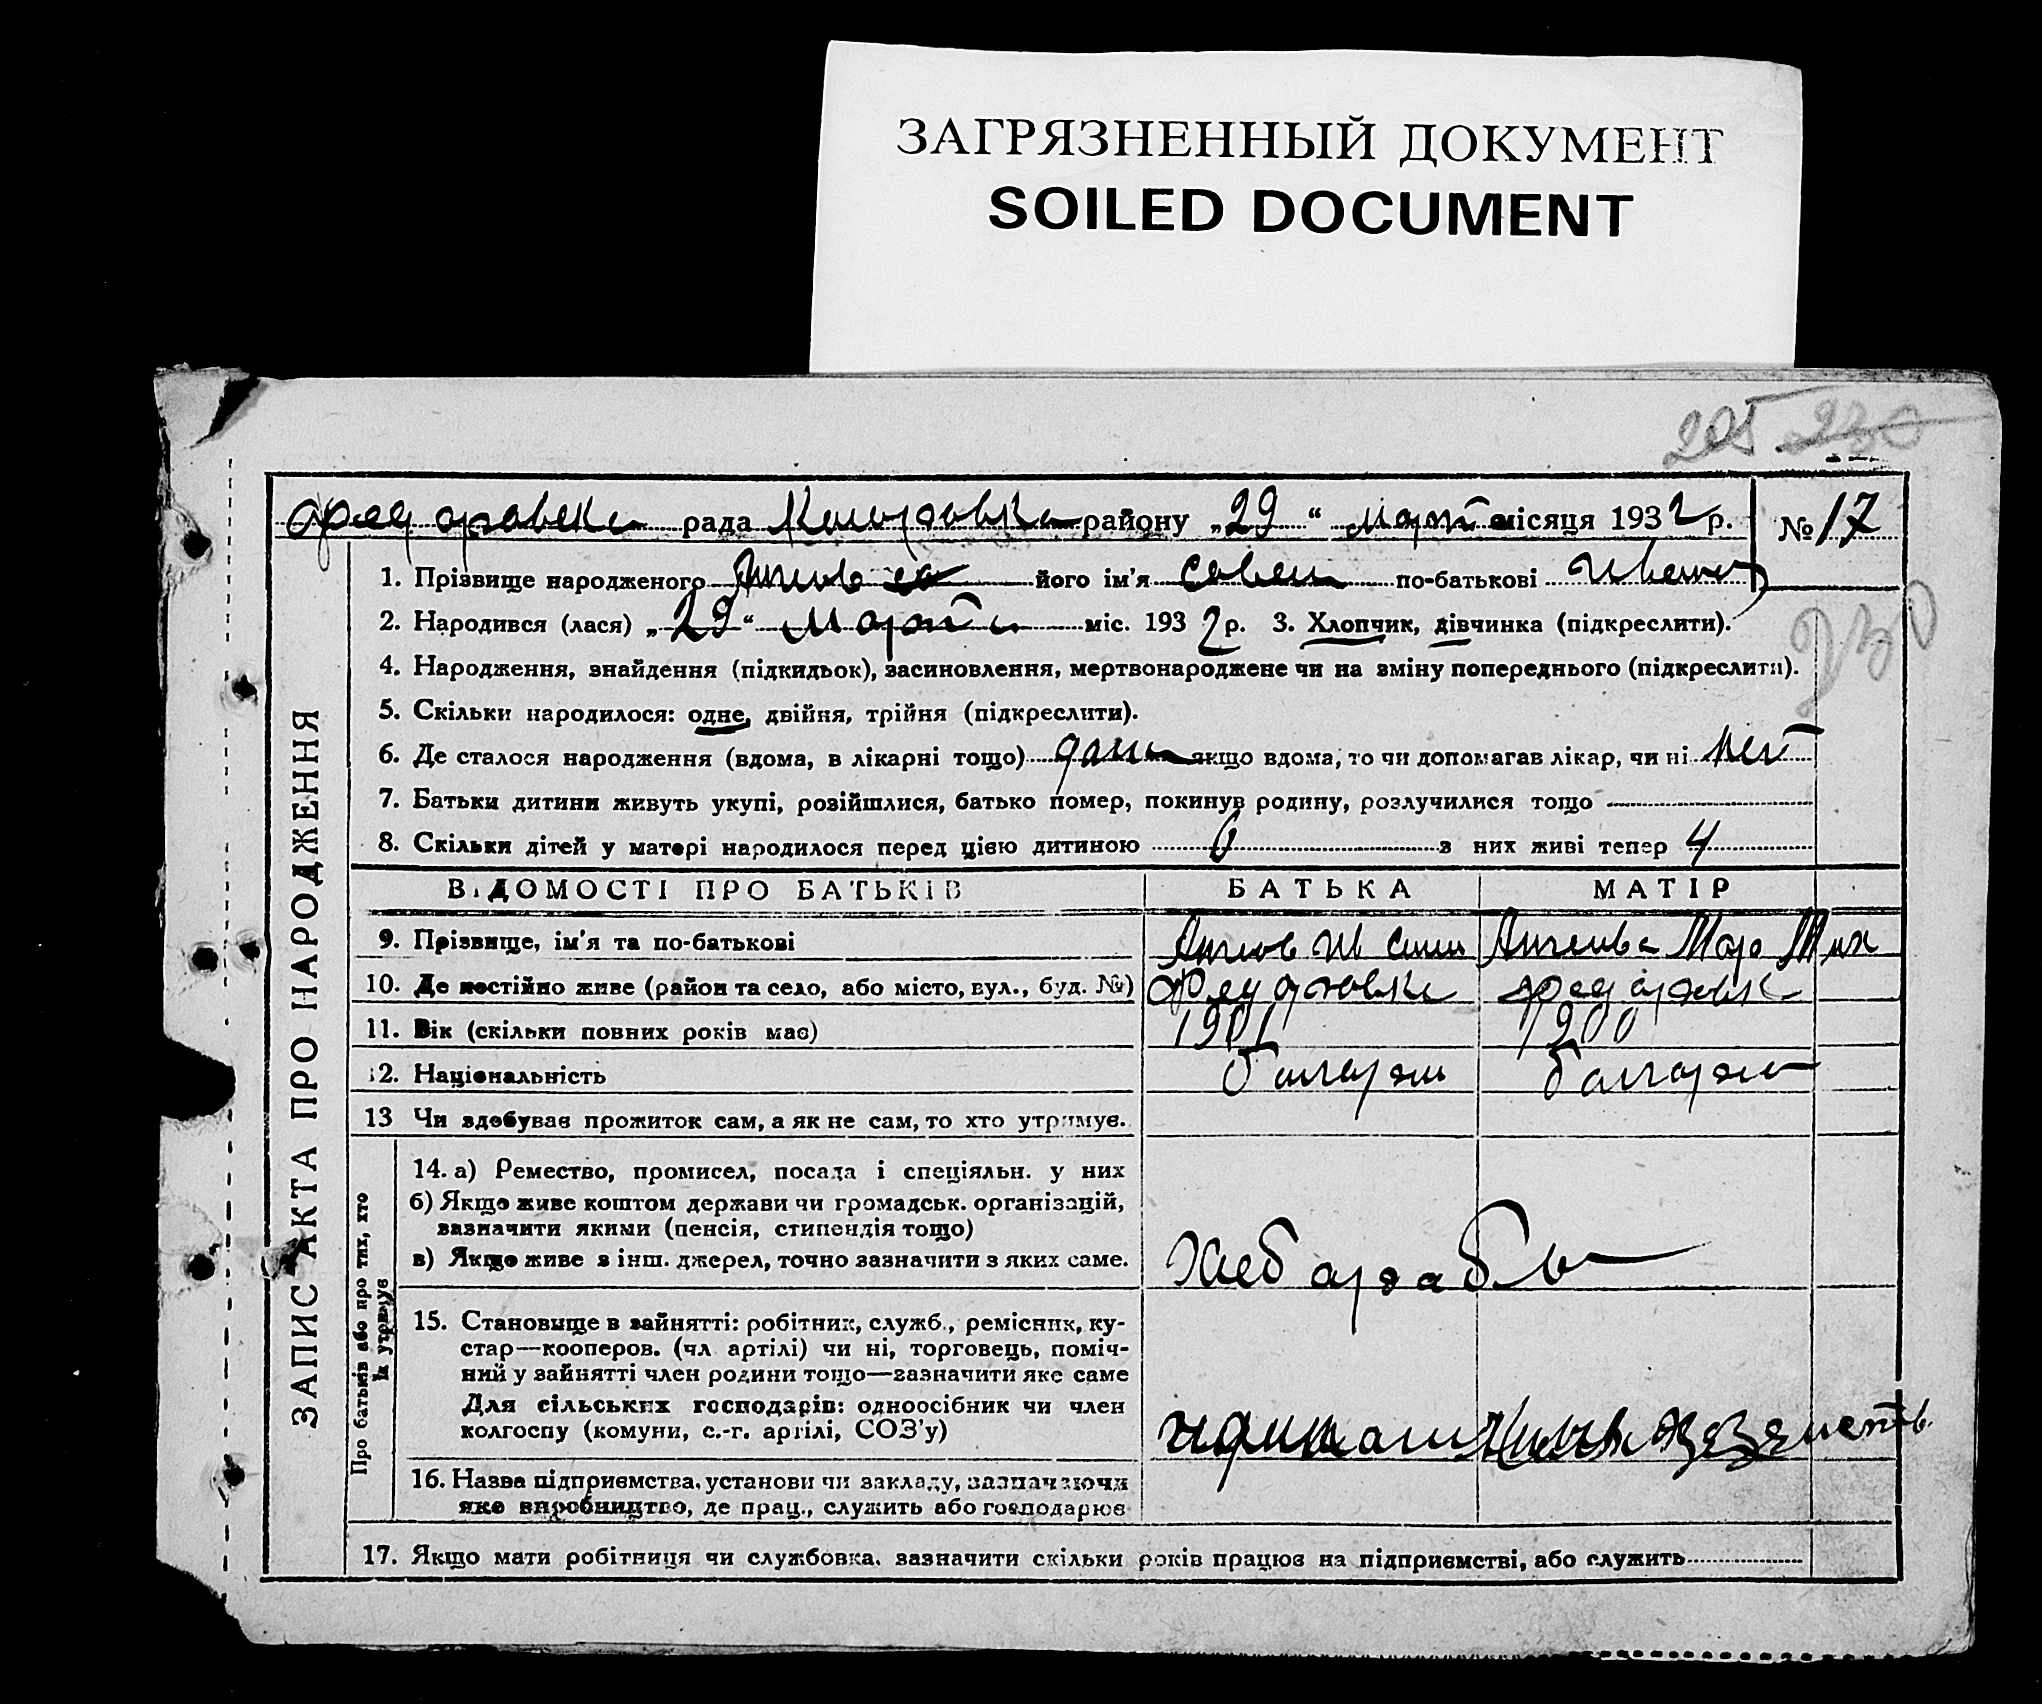 ЗАГРЯЗНЕННЫЙ ДОКУМЕНТ
SOILED DOCUMENT
205 230
рада району „29“ марта місяця 1932 р. № 17
230
ЗАПИС АКТА ПРО НАРОДЖЕННЯ
1. Прізвище народженого Ангелов його ім'я Савели по-батькові Иванов
2. Народився (лася) „29“ марта міс. 1932 р. 3. Хлопчик, дівчинка (підкреслити).
4. Народження, знайдення (підкидьок), засиновлення, мертвонароджене чи на зміну попереднього (підкреслити).
5. Скільки народилося: одне, двійня, трійня (підкреслити).
6. Де сталося народження (вдома, в лікарні тощо) дома якщо вдома, то чи допомагав лікар, чи ні нет
7. Батьки дитини живуть укупі, розійшлися, батько помер, покинув родину, розлучилися тощо
8. Скільки дітей у матері народилося перед цією дитиною 6 з них живі тепер 4
ВІДОМОСТІ ПРО БАТЬКІВ БАТЬКА МАТІР
9. Прізвище, ім'я та по-батькові Ангелов Ив Ангелова Мар Мих
10. Де постійно живе (район та село, або місто, вул., буд. №) Федоровка Федоровка
11. Вік (скільки повних років має) 1901 1900
12. Національність болгары болгары
13 Чи здобував прожиток сам, а як не сам, то хто утримує.
Про батьків або про тих, хто їх утримує
14. а) Ремество, промисел, посада і спеціяльн. у них
б) Якщо живе коштом держави чи громадськ. організацій,
зазначити якими (пенсія, стипендія тощо)
в) Якщо живе з інш. джерел, точно зазначити з яких саме.
Хлебороб
15. Становище в зайнятті: робітник, служб., ремісник, ку-
стар—кооперов. (чл артілі) чи ні, торговець, поміч-
ний у зайнятті член родини тощо—зазначити яке саме
Для сільських господарів: одноосібник чи член
колгоспу (комуни, с.-г. артілі, СОЗ'у)
16. Назва підприємства, установи чи закладу, зазначаючи
яке виробництво, де прац., служить або господарює
17. Якщо мати робітниця чи службовка, зазначити скільки років працює на підприємстві, або служить